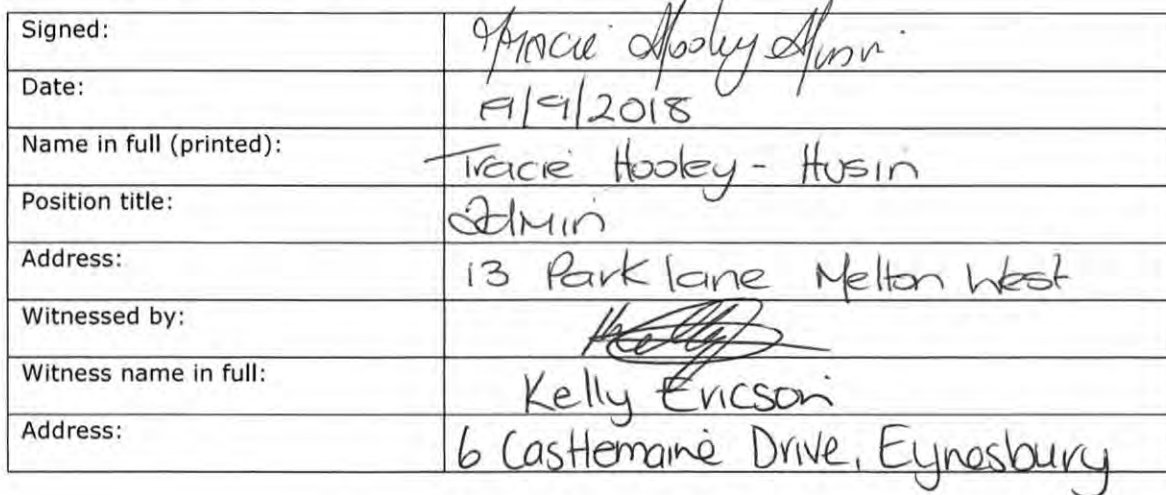 Signed: Tracie Hooley Husin
Date: 19/9/2018
Name in full (printed): Tracie Hooley - Husin
Position title: Admin
Address: 13 Park lane Melton West
Witnessed by: Kelly
Witness name in full: Kelly Ericson
Address: 6 Castlemaine Drive, Eynesbury